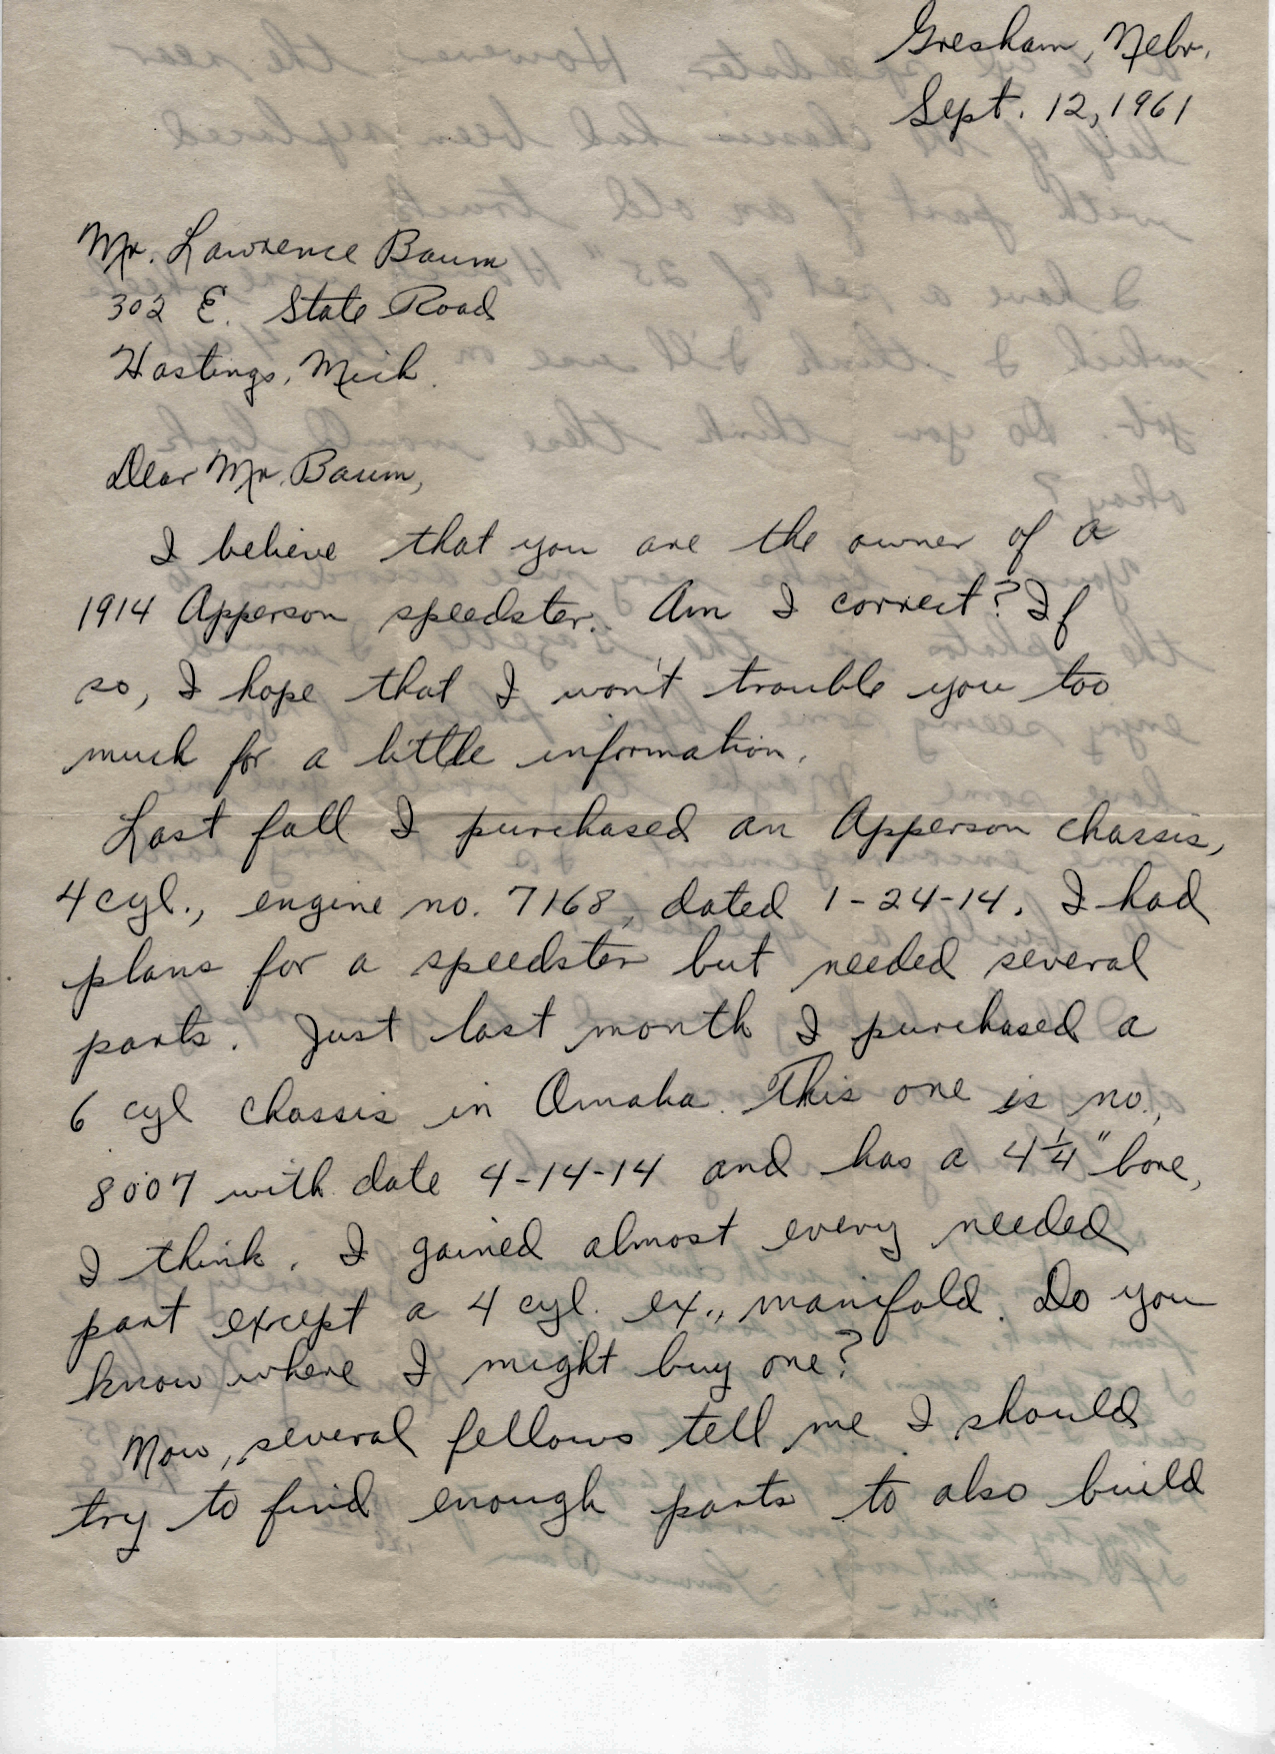 Gresham, Nebr.
Sept. 12, 1961
Mr. Lawrence Baum
302 E. State Road
Hastings, Mich.
Dear Mr. Baum,
I believe that you are the owner of a
1914 Apperson speedster. Am I correct? If
so, I hope that I won't trouble you too
much for a little information.
Last fall I purchased an Apperson chassis,
4 cyl., engine no. 7168, dated 1-24-14. I had
plans for a speedster but needed several
parts. Just last month I purchased a
6 cyl chassis in Omaha. This one is no.,
8007 with date 4-14-14 and has a 4 1/4" bore,
I think. I gained almost every needed
part except a 4 cyl. ex., manifold. Do you
know where I might buy one?
Now, several fellows tell me I should
try to find enough parts to also build